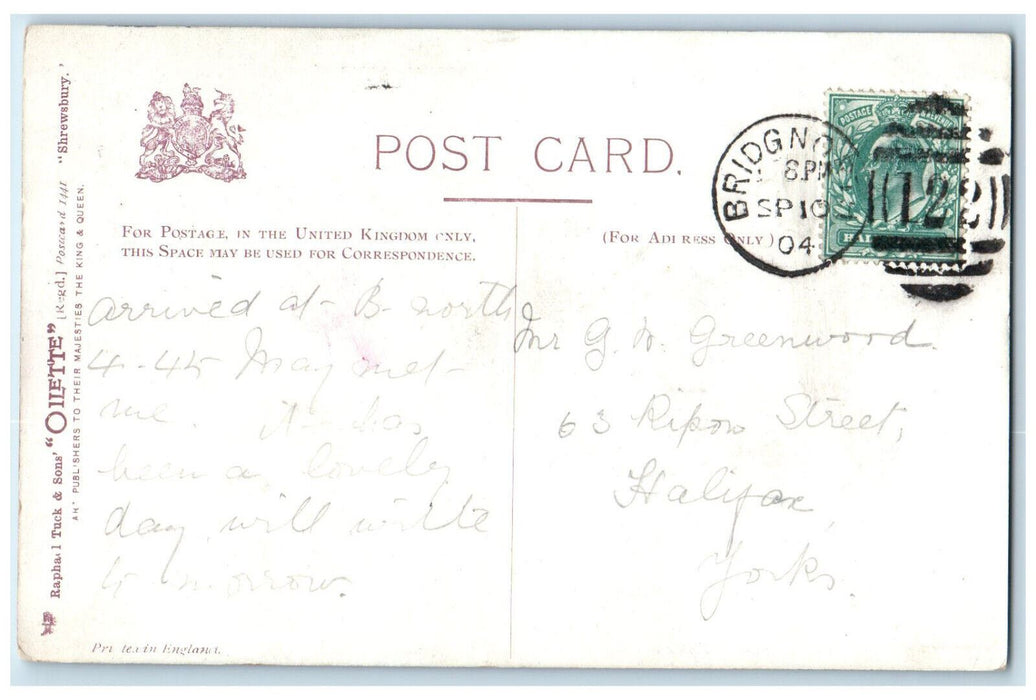 POST CARD.
FOR POSTAGE, IN THE UNITED KINGDOM ONLY,
THIS SPACE MAY BE USED FOR CORRESPONDENCE.
(FOR ADDRESS ONLY)
POSTAGE REVENUE
BRIDGNO
8.PM
SP10
04
122
arrived at B-north
4-45 May met
me. It has
been a lovely
day will write
to morrow.
Mr G. W. Greenwood.
63 Ripon Street,
Halifax,
Yorks.
Raphael Tuck & Sons' "OILETTE" [Regd.] Postcard 1441 "Shrewsbury."
ART PUBLISHERS TO THEIR MAJESTIES THE KING & QUEEN.
Printed in England.